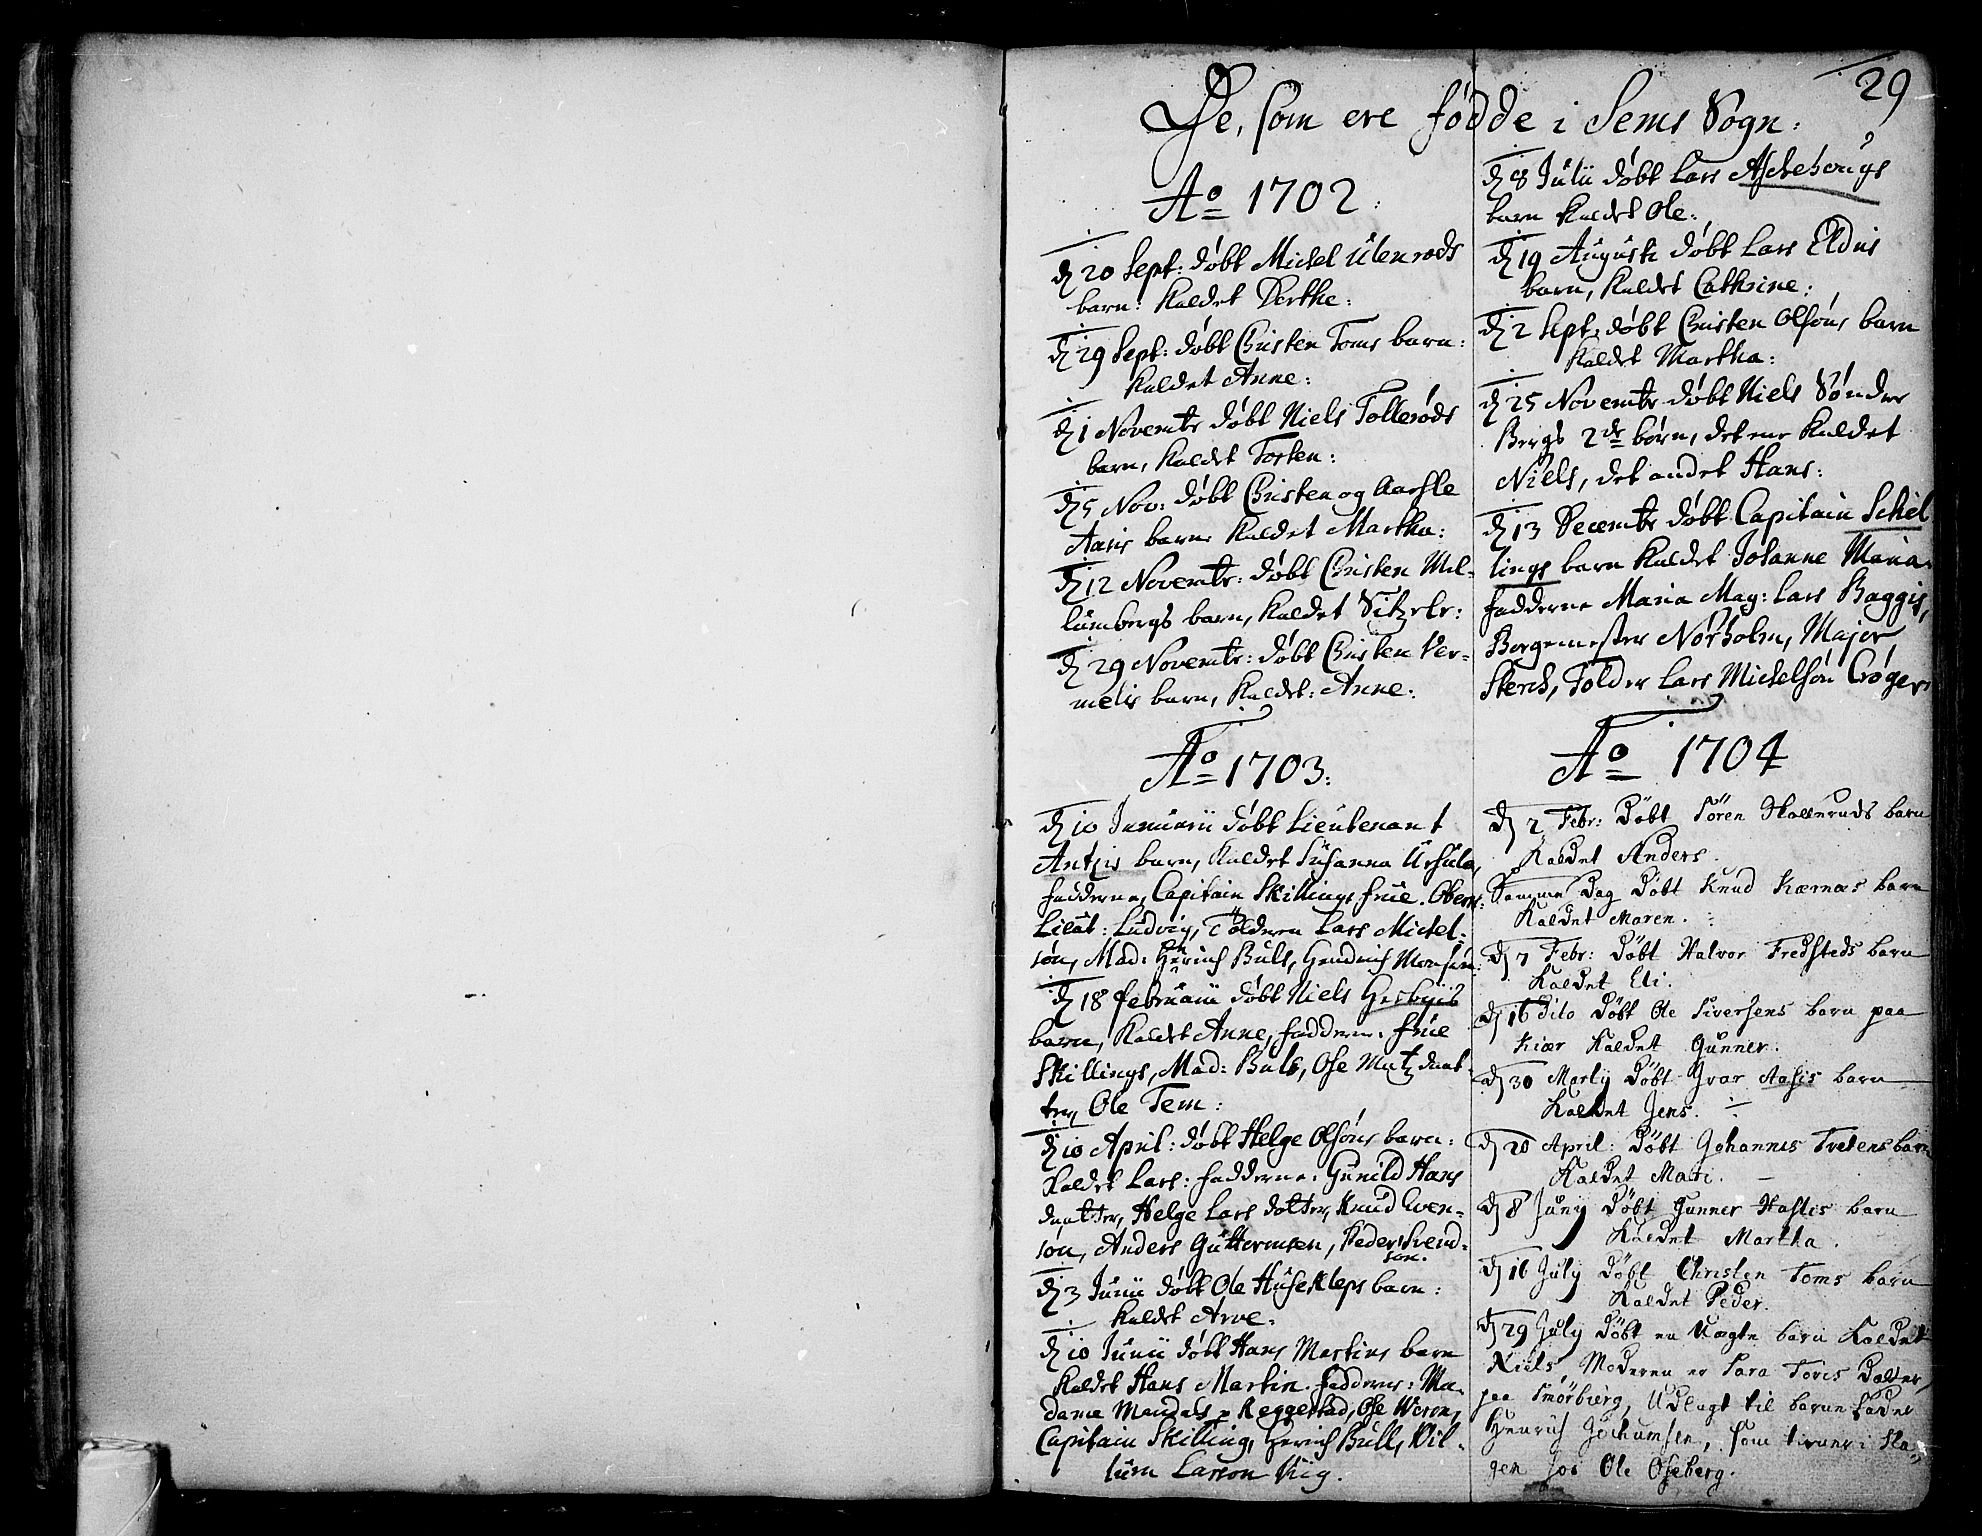 29
De, som ere fødde i Sems Sogn:
Ao 1702:
d 20 Sept: døbt Mickel Ulenrøds
barn: kaldet Berthe:
d 29 Sept: døbt Christen Toms barn:
kaldet Anne:
d 1 Novembr døbt Niels Tollerøds
barn, kaldet Torsten:
d 5 Nov: døbt Christen og Aarsle
Aasis barn kaldet Martha:
d 12 Novembr: døbt Christen Mel-
lumbergs barn, kaldet Sitzele:
d 29 Novembr: døbt Christen Ver-
melis barn, kaldet: Anne.
Ao 1703:
d 10 Januarii døbt Lieutenant
Antzis barn, kaldet Susanna Ursula,
fadderne, Capitain Skillings frue. Oberst
Lieut: Ludvig, Tolderen Lars Mickel-
søn, Mad: Henrich Buls, Hendrich Monsen
d 18 februarii døbt Niels Gesbyis
barn, kaldet Anne, fadderne: frue
Skillings, Mad: Buls, Ose Matz daat-
ter, Ole Tem:
d 10 April: døbt Helge Olsøns barn:
kaldet Lars: fadderne: Gunild Hans
daatter, Helge Lars dotter, Knud Even-
søn, Anders Guttormsen, Peder Svend-
søn.
d 3 Junii døbt Ole Husekleps barn:
kaldet Arve.
d 10 Junii døbt Hans Martins barn
kaldet Hans Martin. fadderne: Ma-
dame Mandals p Reggestad, Ose Woren,
Capitain Skilling, Henrich Bull, Vil-
lum Larson Kiig.
d 8 Julii døbt Lars Aschehougs
barn kaldet Ole:
d 19 Augusti døbt Lars Eldnis
barn, kaldet Cathrine:
d 2 Sept: døbt Christen Olsøns barn
kaldet Martha:
d 25 Novembr døbt Niels Sønder
Bergs 2de børn, det ene kaldet
Niels, det andet Hans:
d 13 Decembr døbt Capitain Schil
lings barn kaldet Johanne Maria.
fadderne Maria Mag: Lars Baggis,
Borgemester Nørholm, Major
Sterch, Tolder Lars Mickelsøn Crøger
Ao 1704
d 2 Febr: Døbt Sören Skallerøds barn
Kaldet Anders.
Samme Dag Døbt Knud Kærnæs barn
Kaldet Maren.
d 7 Febr: Døbt Halvor Fredsteds barn
Kaldet Eli.
d 16 Dito Døbt Ole Siversens barn paa
Kiær Kaldet Gunner.
d 30 Marty Døbt Ivar Aasis barn
Kaldet Jens.
d 20 April: Døbt Johannis Tredens barn
Kaldet Mari.
d 8 Juny Døbt Gunner Haslis barn
Kaldet Martha.
d 16 July Døbt Christen Toms barn
Kaldet Peder.
d 29 July Døbt en Uægte barn Kaldet
Niels, Moderen er Sara Toris Dotter
paa Smörbierg, Udlagt til barne Fader
Henrich Jochumsen, som tiener i Sla-
gen hos Ole Oseberg.